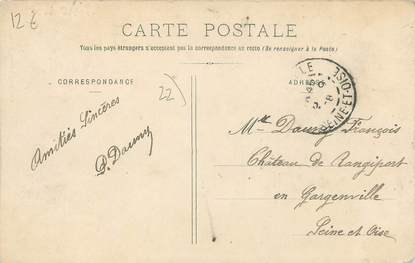 12 €
CARTE POSTALE
Tous les pays étrangers n'acceptent pas la correspondance au recto (Se renseigner à la Poste)
CORRESPONDANCE
ADRESSE
22)
Amitiés Sincères
Mlle François
Château de Rangiport
en Gargenville
Seine et Oise
SEINE-ET-OISE